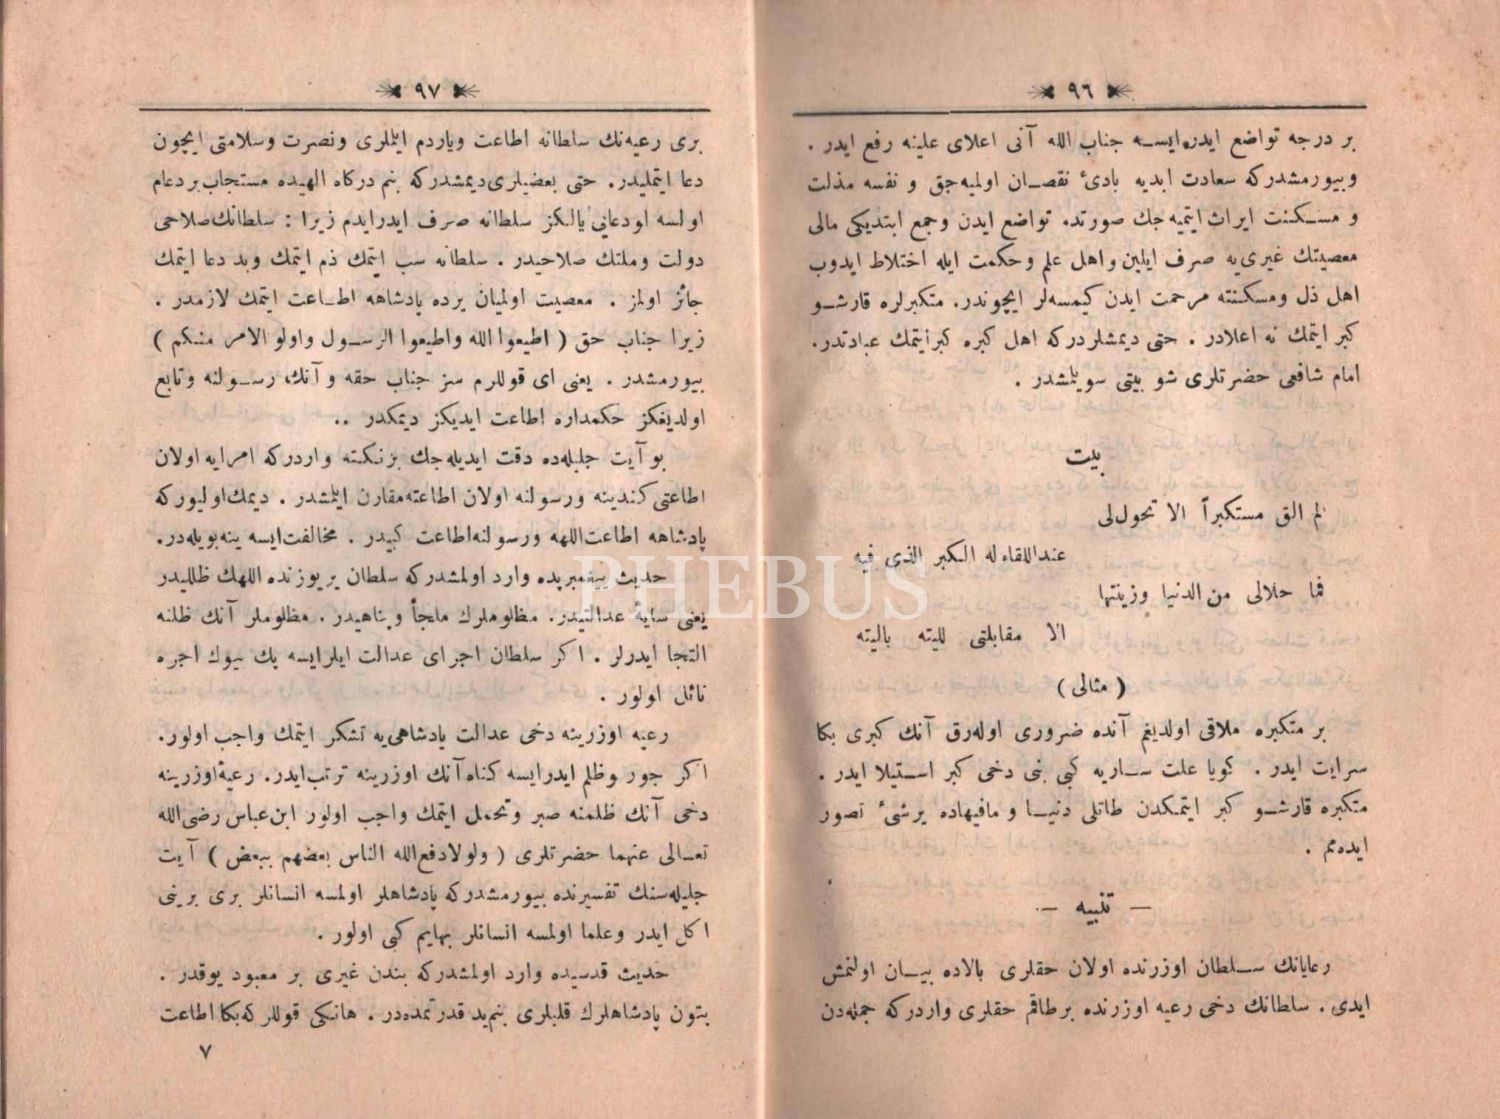 ٩٦
بر درجه تواضع ایدر ایسه جناب الله آنی اعلای علینه رفع ایدر .
وبیورمشدرکه سعادت ابدیه بادئ نقصان اولمیه‌جق و نفسه مذلت
و مسکنت ایراث ایتمیه‌جك صورتده تواضع ایدن وجمع ابتدیکی مالی
معصیتك غیری‌یه صرف ایلین واهل علم وحکمت ایله اختلاط ایدوب
اهل ذل ومسکنته مرحمت ایدن کیمسه‌لر ایچوندر . متکبرلره قارشو
کبر ایتمك نه اعلادر . حتی دیمشلردرکه اهل کبره کبرایتمك عبادتدر.
امام شافعی حضرتلری شو بیتی سویلمشدر .
بیت
لم الق مستکبراً الا تحول‌لی
عنداللقاءله الکبر الذی فیه
فما حلالی من الدنیا وزینتها
الا مقابلتی للیته بالیته
( مثالی )
بر متکبره ملاقی اولدیغم آنده ضروری اوله‌رق آنك کبری بکا
سرایت ایدر . کویا علت ساریه کبی بنی دخی کبر استیلا ایدر .
متکبره قارشو کبر ایتمکدن طاتلی دنیا و مافیهاده برشئ تصور
ایده‌مم .
— تنبیه —
رعایانك سلطان اوزرنده اولان حقلری بالاده بیان اولنمش
ایدی . سلطانك دخی رعیه اوزرنده برطاقم حقلری واردرکه جمله‌دن
٩٧
بری رعیه‌نك سلطانه اطاعت ویاردم ایتملری ونصرت وسلامتی ایچون
دعا ایتملیدر . حتی بعضیلری دیمشدرکه بنم درکاه الهیده مستجاب بردعام
اولسه اودعایی یالکز سلطانه صرف ایدرایدم زیرا : سلطانك صلاحی
دولت وملتك صلاحیدر . سلطانه سب ایتمك ذم ایتمك وبد دعا ایتمك
جائز اولمز . معصیت اولمیان یرده پادشاهه اطاعت ایتمك لازمدر .
زیرا جناب حق ( اطیعوا الله واطیعوا الرسول واولو الامر منکم )
بیورمشدر . یعنی ای قوللرم سز جناب حقه و آنك رسولنه وتابع
اولدیغکز حکمداره اطاعت ایدیکز دیمکدر ..
بو آیت جلیله‌ده دقت ایدیله‌جك برنکته واردرکه امرایه اولان
اطاعتی کندینه ورسولنه اولان اطاعته مقارن ایلمشدر . دیمك اولیورکه
پادشاهه اطاعت اللهه ورسولنه اطاعت کبیدر . مخالفت ایسه ینه بویله‌در.
حدیث پیغمبریده وارد اولمشدرکه سلطان یریوزنده اللهك ظللیدر
یعنی سایۀ عدالتیدر . مظلوملرك ملجأ وپناهیدر . مظلوملر آنك ظلنه
التجا ایدرلر . اکر سلطان اجرای عدالت ایلرایسه پك بیوك اجره
نائل اولور .
رعیه اوزرینه دخی عدالت پادشاهی‌یه تشکر ایتمك واجب اولور.
اکر جور وظلم ایدرایسه کناه آنك اوزرینه ترتب ایدر . رعیۀ اوزرینه
دخی آنك ظلمنه صبر وتحمل ایتمك واجب اولور ابن عباس رضی الله
تعالی عنهما حضرتلری ( ولولادفع الله الناس بعضهم ببعض ) آیت
جلیله‌سنك تفسیرنده بیورمشدرکه پادشاهلر اولمسه انسانلر بری برینی
اکل ایدر وعلما اولمسه انسانلر بهایم کبی اولور .
حدیث قدسیده وارد اولمشدرکه بندن غیری بر معبود یوقدر .
بتون پادشاهلرك قلبلری بنم ید قدرتمده‌در . هانکی قوللرکه بکا اطاعت
٧
PHEBUS